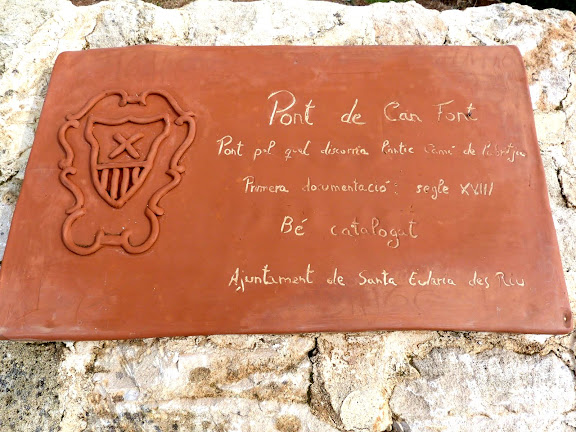 Pont de Can Font
Pont pel qual discorria l'antic camí de l'esglesia
Primera documentació: segle XVIII
Bé catalogat
Ajuntament de Santa Eulària des Riu